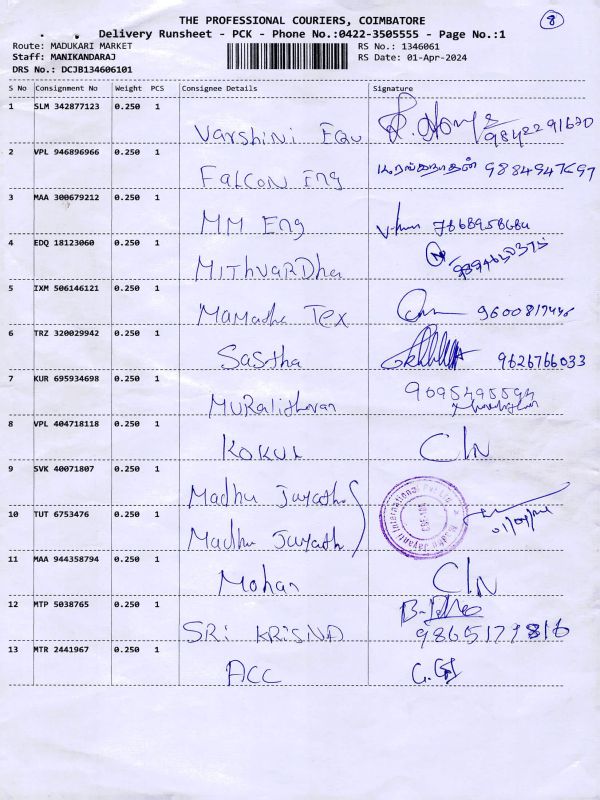 8
THE PROFESSIONAL COURIERS, COIMBATORE
Delivery Runsheet - PCK - Phone No.:0422-3505555 - Page No.:1
Route: MADUKARI MARKET RS No.: 1346061
Staff: MANIKANDARAJ RS Date: 01-Apr-2024
DRS No.: DCJB134606101
S No Consignment No Weight PCS Consignee Details Signature
1 SLM 342877123 0.250 1
Varshini Equ 9842291620
2 VPL 946896966 0.250 1
Falcon Eng
3 MAA 300679212 0.250 1
MM Eng
4 EDQ 18123060 0.250 1
Mithvardha
5 IXM 506146121 0.250 1
Mamatha Tex
6 TRZ 320029942 0.250 1
Sastha 9626766033
7 KUR 695934698 0.250 1
Muralitharan
8 VPL 404718118 0.250 1
Kokul C/N
9 SVK 40071807 0.250 1
Madhu Jayath
10 TUT 6753476 0.250 1
Madhu Jayath 01/04/24
11 MAA 944358794 0.250 1
Mohan C/N
12 MTP 5038765 0.250 1
SRi KRISNA
13 MTR 2441967 0.250 1
ACC